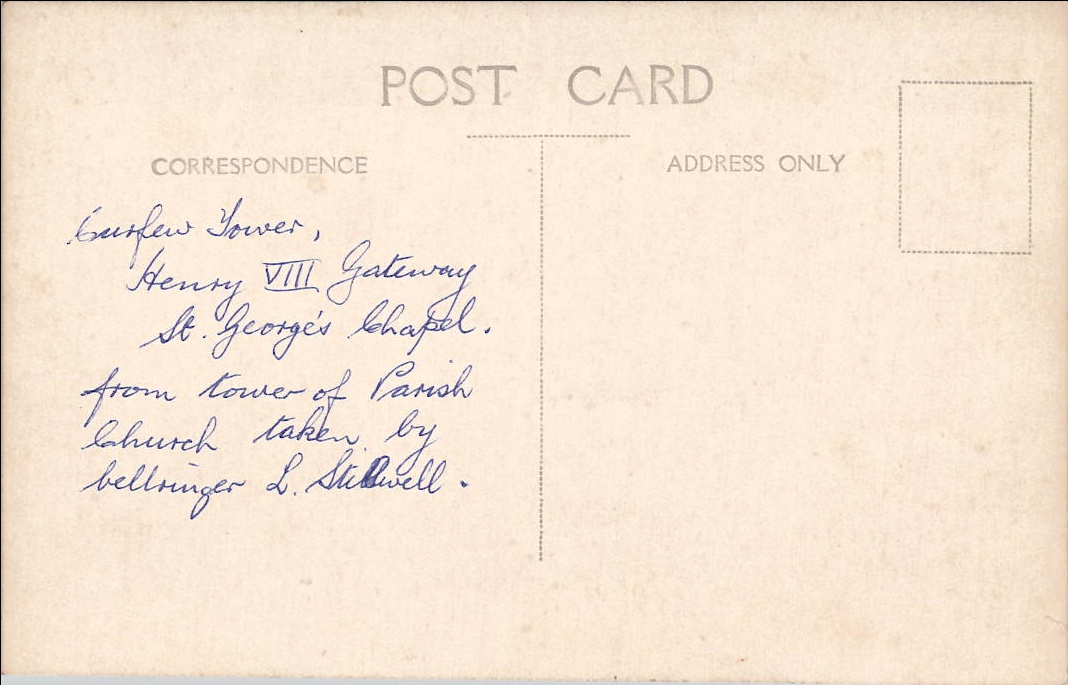 POST CARD
CORRESPONDENCE
ADDRESS ONLY
Curfew Tower,
Henry VIII Gateway
St. George's Chapel.
from tower of Parish
Church taken by
bellringer L. Stillwell.